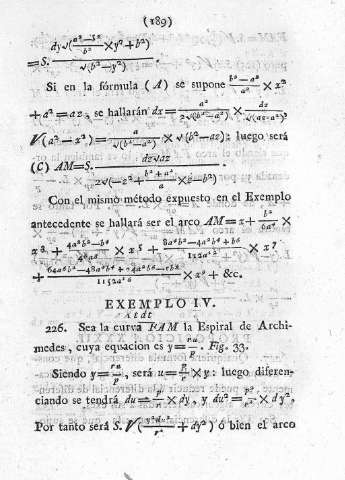 (189)
=S. dy√(a²−b²/b² × y² + b²) / √(b²−y²)
Si en la fórmula (A) se supone b²−a²/a² × x²
+ a² = az, se hallarán dx = a²/2√(b²−a²) × dz/√(az−a²)
√(a²−x²) = a/√(b²−a²) × √(b²−az); luego será
(C) AM=S. dz√az / 2√(−z² + b²+a²/a × z − b²).
Con el mismo método expuesto en el Exemplo
antecedente se hallará ser el arco AM=x+ b²/6a⁴ ×
x³ + 4a²b²−b⁴/40a⁸ × x⁵ + 8a⁴b²−4a²b⁴+b⁶/112a¹² × x⁷
+ 64a⁶b²−48a⁴b⁴+24a²b⁶−5b⁸/1152a¹⁶ × x⁹ + &c.
EXEMPLO IV.
226. Sea la curva FAM la Espiral de Archi-
medes, cuya equacion es y= ru/p. Fig. 33.
Siendo y= ru/p, será u= p/r × y: luego diferen-
ciando se tendrá du= p/r × dy, y du²= p²/r² × dy²,
Por tanto será S.√(y²du²/r² + dy²) ó bien el arco